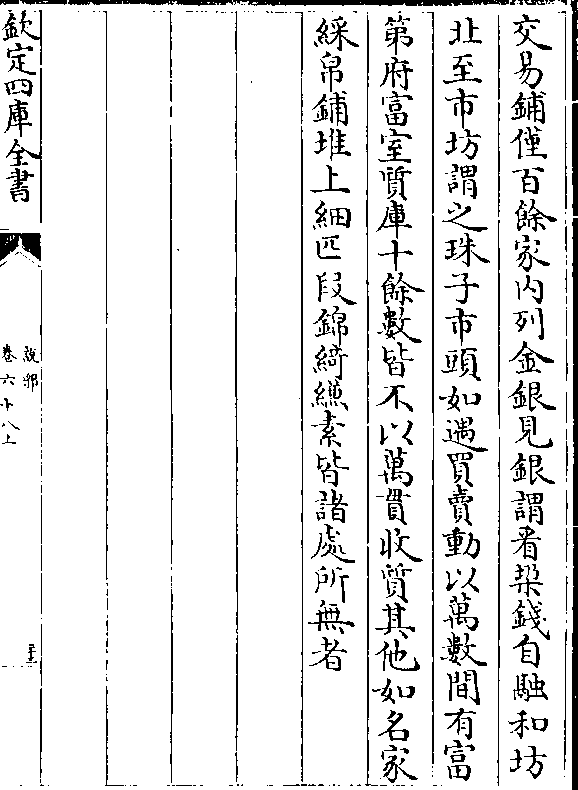 交易鋪僅百餘家内列金銀見銀謂看垜錢自融和坊
北至市坊謂之珠子市頭如遇買賣動以萬數間有富
第府富室質庫十餘數皆不以萬貫收質其他如名家
綵帛鋪堆上細匹段錦綺縑素皆諸處所無者
欽定四庫全書
說郛
卷六十八上